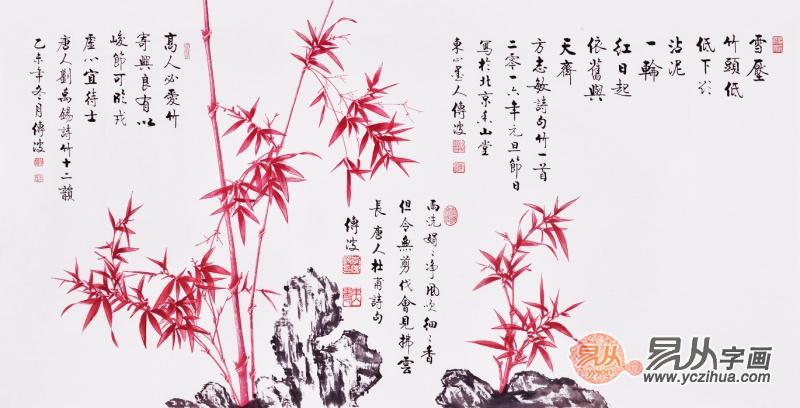 雪壓
竹頭低
低下欲
沾泥
一輪
紅日起
依舊與
天齊
方志敏詩句竹一首
二零一六年元旦節日
寫於北京香山堂
東山墨人傳波
雨洗娟々淨風吹細々香
但令無剪伐會見拂雲
長唐人杜甫詩句
傳波
高人必愛竹
寄興良有以
峻節可臨戎
虛心宜待士
唐人劉禹錫詩竹十二韻
乙未年冬月傳波
易从
yiyoon
易从字画
www.yczihua.com